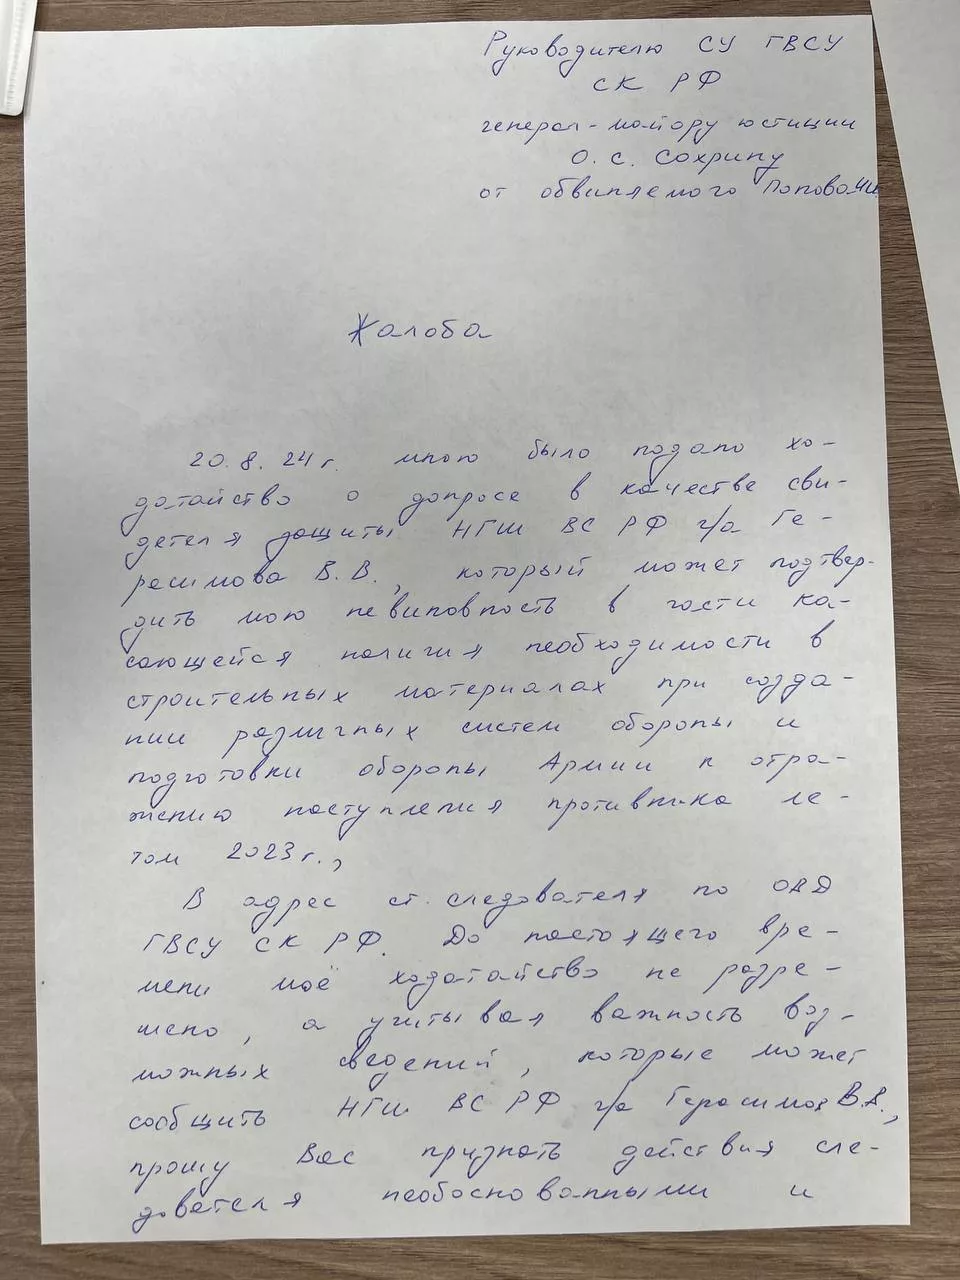 Руководителю СУ ГВСУ
СК РФ
генерал-майору юстиции
О. С. Сохрину
от обвиняемого Попова И.И.
Жалоба
20.8.24г. мною было подано хо-
датайство о допросе в качестве сви-
детеля защиты НГШ ВС РФ г/а Ге-
расимова В.В., который может подтвер-
дить мою невиновность в части ка-
сающейся наличия необходимости в
строительных материалах при созда-
нии различных систем обороны и
подготовки обороны Армии к отра-
жению наступления противника ле-
том 2023г.,
В адрес ст. следователя по ОВД
ГВСУ СК РФ. До настоящего вре-
мени моё ходатайство не разре-
шено, а учитывая важность воз-
можных сведений, которые может
сообщить НГШ ВС РФ г/а Герасимов В.В.,
прошу Вас признать действия сле-
дователя необоснованными и